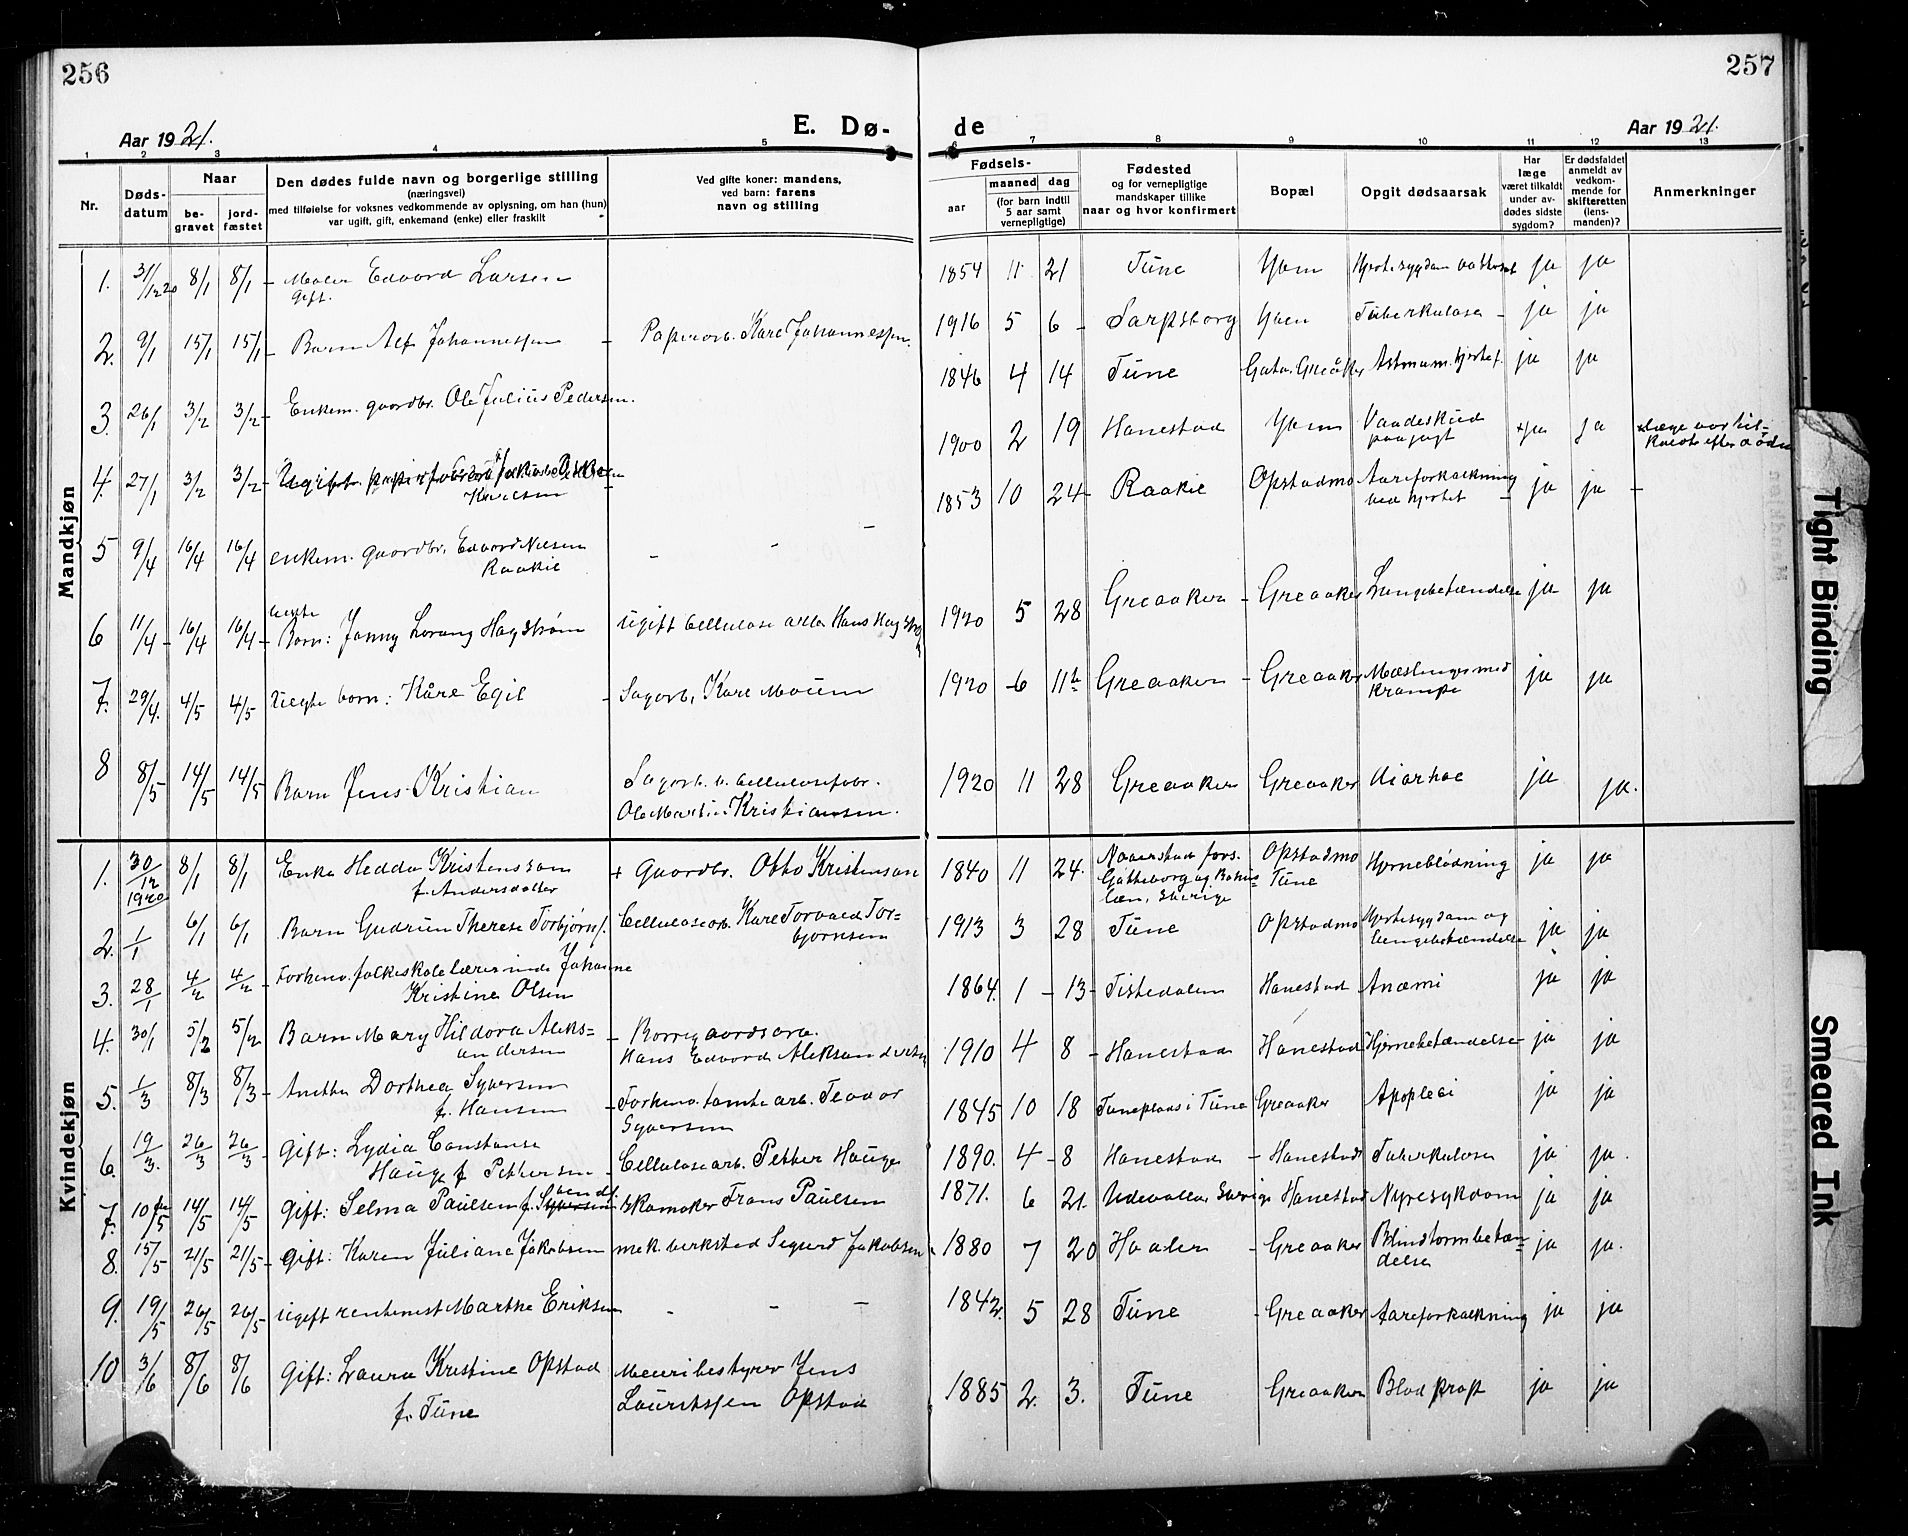 256
257
E. Dø- de
Aar 1921.
Aar 1921.
1 2 3 4 5 6 7 8 9 10 11 12 13
Nr.
Døds-datum
Naar
be-gravet
jord-fæstet
Den dødes fulde navn og borgerlige stilling
(næringsvei)
med tilføielse for voksnes vedkommende av oplysning, om han (hun)
var ugift, gift, enkemand (enke) eller fraskilt
Ved gifte koner: mandens,
ved barn: farens
navn og stilling
Fødsels-
aar
maaned dag
(for barn indtil
5 aar samt
vernepligtige)
Fødested
og for vernepligtige
mandskaper tillike
naar og hvor konfirmert
Bopæl
Opgit dødsaarsak
Har
læge
været tilkaldt
under av-
dødes sidste
sygdom?
Er dødsfaldet
anmeldt av
vedkom-
mende for
skifteretten
(lens-
manden)?
Anmerkninger
Mandkjøn
1. 31/12 20 8/1 8/1 Maler Edvard Larsen 1854 11 21 Tune ja ja
Gift.
2. 9/1 15/1 15/1 Barn Alf Johannessen Papirarb. Karl Johannessen. 1916 5 6 Sarpsborg Tuberkulose ja ja
3. 26/1 3/2 3/2 Enkem. gaardbr. Ole Julius Pedersen. 1846 4 14 Tune Greåker ja ja
4. 27/1 3/2 3/2 Ugift 1900 2 19 Hanestad Vaadeskud ja ja
Karlsen paa jagt
5 9/4 16/4 16/4 enkem. gaardbr. Edvard Nilsen - - - 1853 10 24 Raakil Opstadmo Aareforkalkning ja ja
Raakil ved hjertet
6 11/4 16/4 16/4 uegte
Barn: Jonny Lorang Hagstrøm ugift Cellulose arb. Hans Hagstrøm 1920 5 28 Greaaker Greaaker Lungebetændelse ja ja
7. 29/4. 4/5 4/5 Uegte barn: Kåre Egil Sagarb. Kare Moum 1920 6 11 Greaaker Greaaker Mæslinger med ja ja
Krampe
8 8/5 14/5 14/5 Barn Jens Kristian Sagarb. v. Cellulosefabr. 1920 11 28 Greaaker Greaaker diarhoe ja ja.
Ole Martin Kristiansen.
Kvindekjøn
1. 30/12 1920 8/1 8/1 Enke Hedda Kristensson + Gaardbr. Otto Kristenson 1840 11 24. Naverstad fors. Opstadmo Hjerneblødning ja ja
f. Andersdatter Gøtteborg og Bohus Tune
læn, Sverige
2. 1/1 6/1 6/1 Barn Gudrun Therese Torbjørns. Cellulosearb. Karl Torvald Tor- 1913 3 28 Tune Opstadmo Hjertesygdom og ja ja
bjørnsen lungebetændelse
3. 28/1 4/2 4/2 Forhenv. folkeskolelærerinde Johanne 1864. 1 13 Tistedalen Hanestad Anæmi ja ja
Kristine Olsen
4. 30/1 5/2 5/2 Barn Mary Hildora Aleks- Borregaardsarb. 1910 4 8 Hanestad Hanestad Hjernebetændelse ja ja
andersen Hans Edvard Aleksandersen
5. 1/3 8/3 8/3 Anette Dorthea Syversen 1845 10 18 Tuneplads i Tune Greaaker Apoplexi ja ja
f. Hansen Forhenv. tomtearb. Teodor
Syversen
6. 19/3. 26/3 26/3 Gift: Lydia Constanse 1890. 4 8 Hanestad Hanestad Tuberkulose ja ja.
Hauge f. Pettersen Cellulosearb. Petter Hauge
7. 10/5 14/5 14/5 Gift: Selma Paulsen f. Syversen Skomaker Frans Paulsen 1871. 6 21. Udevalla, Sverige Hanestad Nyresykdom ja ja
8. 15/5 21/5 21/5 Gift: Karen Juliane Jakobsen mek. verksted Sigurd Jakobsen 1880 7 20 Haalen Greaaker Blindtarmbetæn- ja ja.
delse
9. 19/5 26/5 26/5 ugift rentenist Marthe Eriksen - - - 1842. 5 28 Tune Greaaker Aareforkalkning ja ja
10 3/6 8/6 8/6 Gift: Laura Kristine Opstad Meieribestyrer Jens 1885 2. 3. Tune Greaaker Blodprop ja ja
f. Tune Lauritssen Opstad
Tight Binding
Smeared Ink